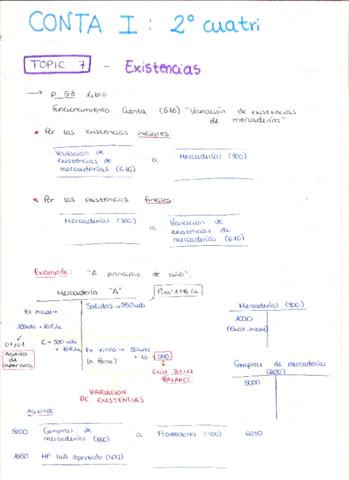 CONTA I : 2º cuatri
TOPIC 7 - Existencias
→ p. 53 libro
Funcionamiento Cuenta (610) "Variación de existencias
de mercaderías"
* Por las existencias iniciales:
Variación de
existencias de
mercaderías (610)
a
Mercaderías (300)
* Por las existencias finales:
Mercaderías (300)
a
Variación de
existencias de
mercaderías (610)
Example: "A principio de año",
Mercadería "A"
Salidas → 550 uds
Ex. inicial →
100 uds
01/01
Asiento de
apertura
C → 500 uds
Ex. final → 50 uds
Exist.
BALANCE
VARIACIÓN
DE EXISTENCIAS
Mercaderías (300)
1000
(Exist. inicial)
Compras de mercaderías
(600)
5000
Asientos
5000 Compras de
mercaderías (600)
a Proveedores (400) 6050
1050 HP IVA soportado (472)